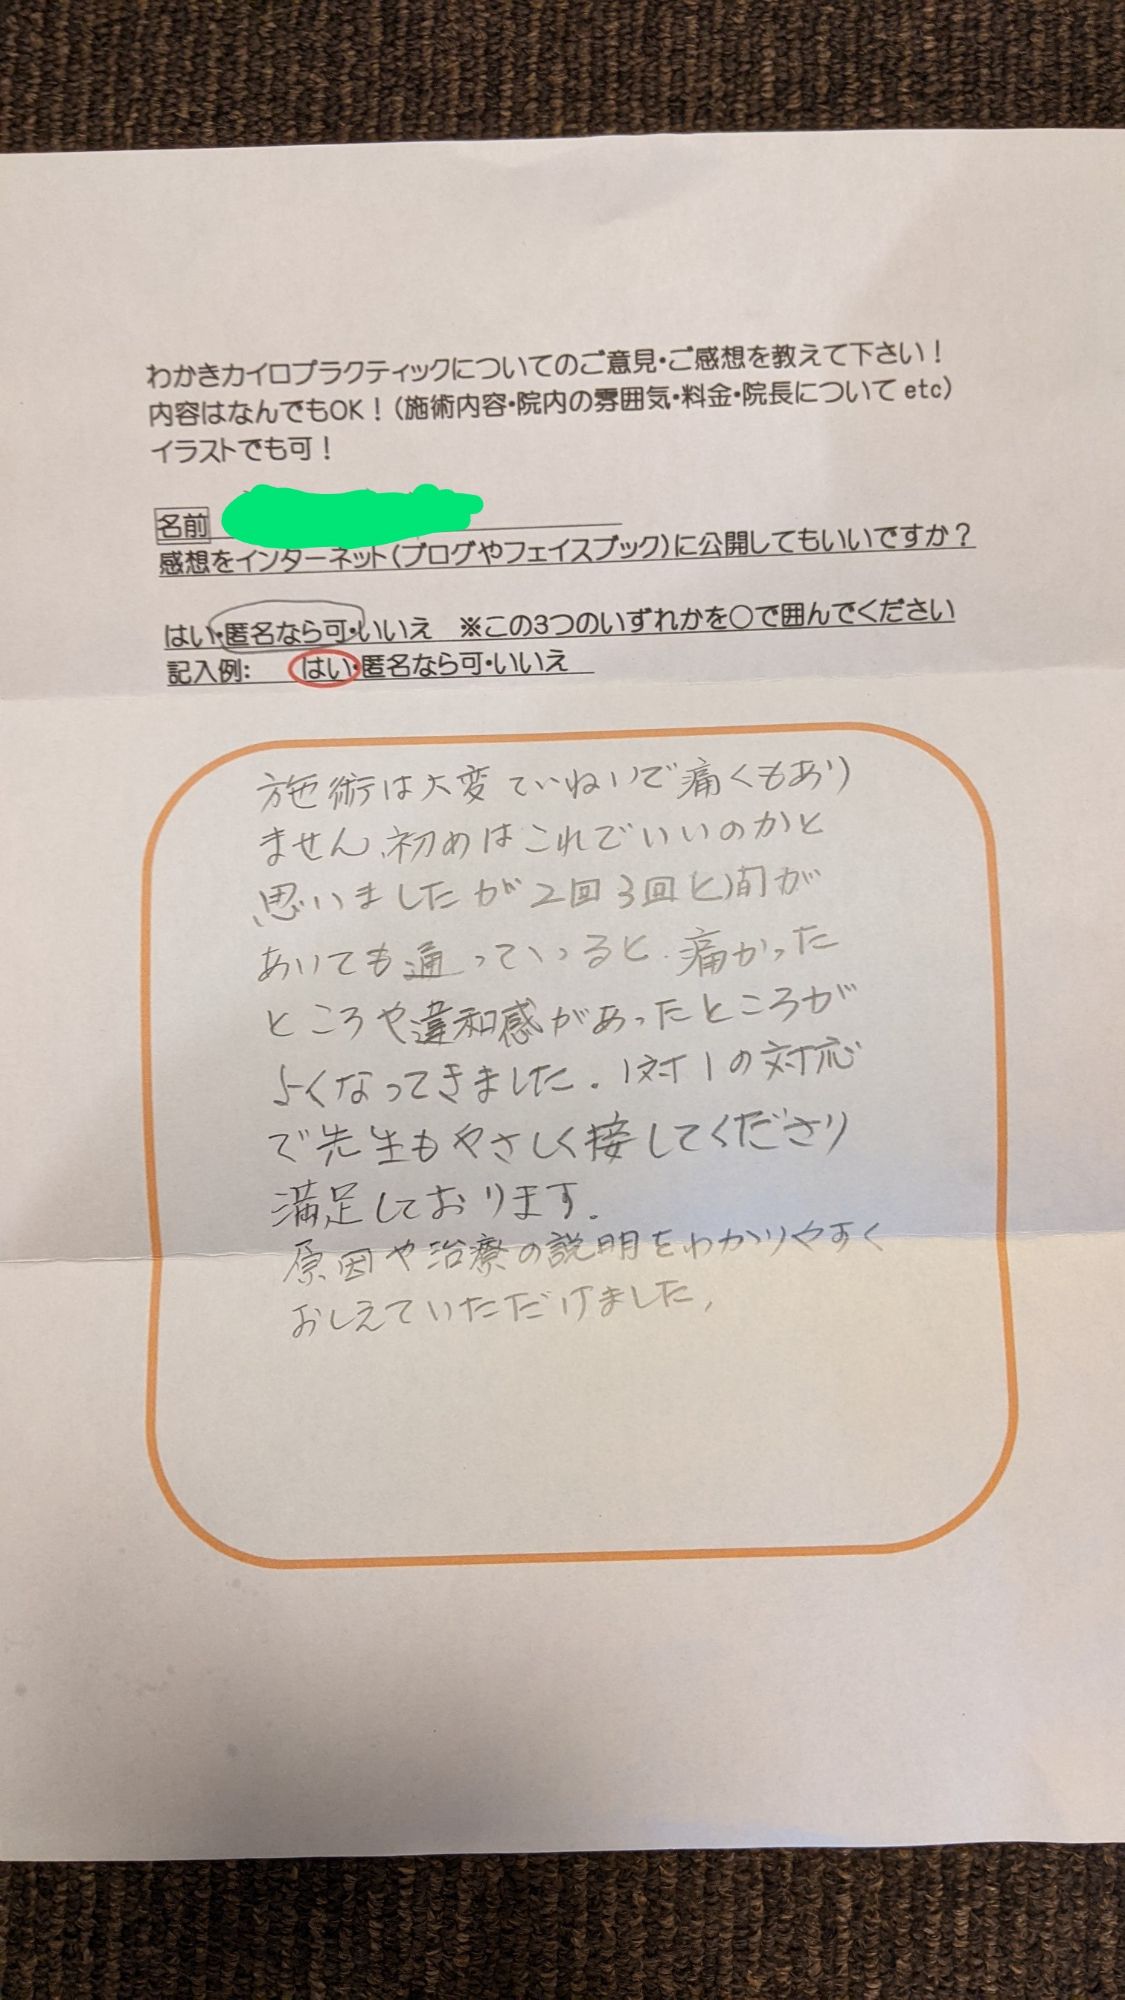 わかきカイロプラクティックについてのご意見・ご感想を教えて下さい！
内容はなんでもOK！（施術内容・院内の雰囲気・料金・院長について etc）
イラストでも可！
名前
感想をインターネット（ブログやフェイスブック）に公開してもいいですか？
はい・匿名なら可・いいえ　※この3つのいずれかを○で囲んでください
記入例：　はい・匿名なら可・いいえ
施術は大変ていねいで痛くもあり
ません、初めはこれでいいのかと
思いましたが2回3回と間が
あいても通っていると、痛かった
ところや違和感があったところが
よくなってきました。1対1の対応
で先生もやさしく接してくださり
満足しております。
原因や治療の説明をわかりやすく
おしえていただけました。